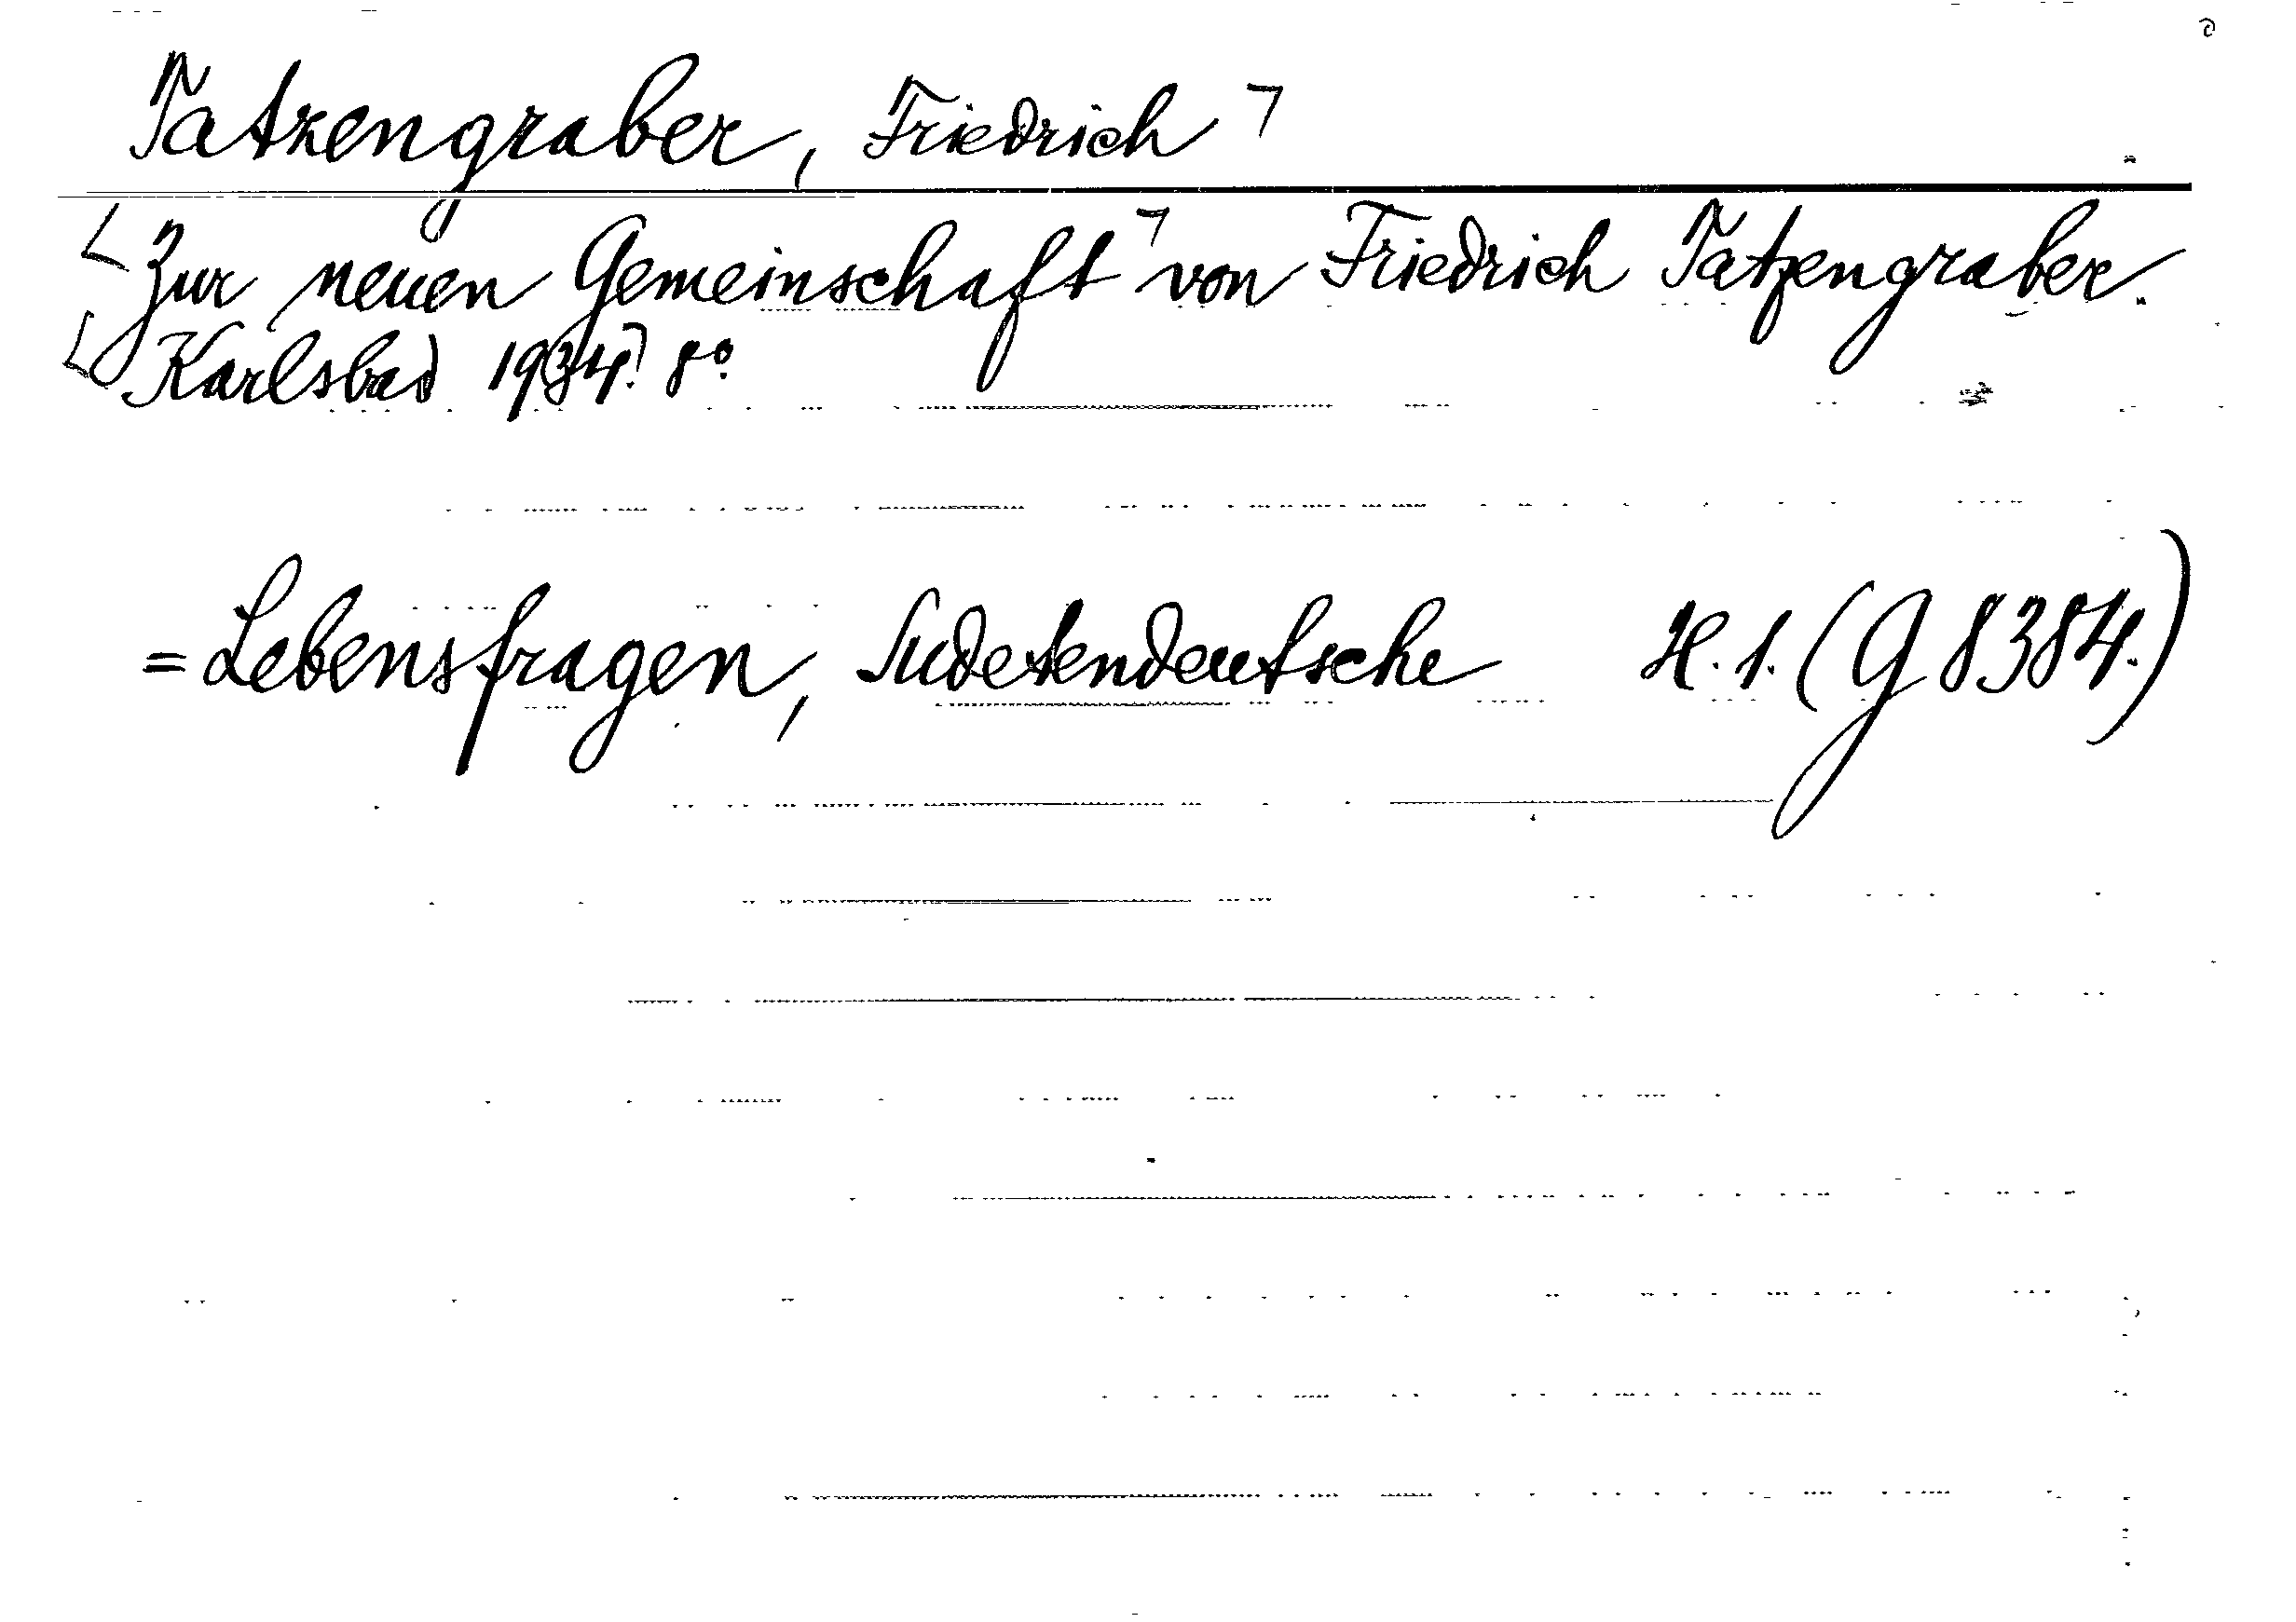 Tatzengraber, Friedrich ㄱ
Zur neuen Gemeinschaft von Friedrich Tatzengraber.
Karlsbad 1934. 8°.
= Lebensfragen, Sudetendeutsche H. 1. (G 8384.)